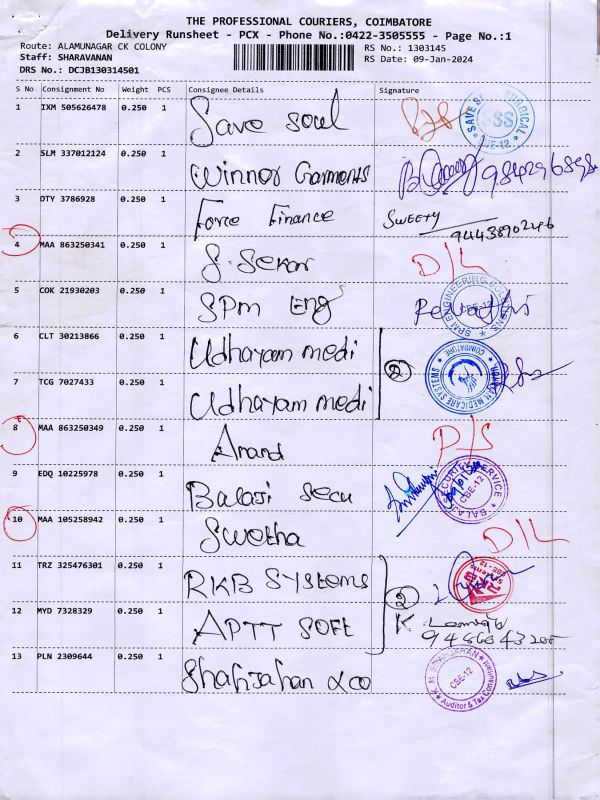 THE PROFESSIONAL COURIERS, COIMBATORE
Delivery Runsheet - PCX - Phone No.:0422-3505555 - Page No.:1
Route: ALAMUNAGAR CK COLONY
Staff: SHARAVANAN
DRS No.: DCJB130314501
RS No.: 1303145
RS Date: 09-Jan-2024
S No Consignment No Weight PCS Consignee Details Signature
1 IXM 505626478 0.250 1 Save Soul
SSS
2 SLM 337012124 0.250 1 Winner Garments
3 DTY 3786928 0.250 1 Force Finance SWEETY
9443890246
4 MAA 863250341 0.250 1 S. Sekar D/L
5 COK 21930203 0.250 1 SPM Eng Revathi
SPM ENGINEERING
6 CLT 30213866 0.250 1 Udhayam medi
2
7 TCG 7027433 0.250 1 Udhayam medi
UDHAYAM MEDICARE SYSTEMS COIMBATORE
8 MAA 863250349 0.250 1 Anand D/S
9 EDQ 10225978 0.250 1 Balaji Secu
BALAJI SECURITY SERVICE CBE-12
10 MAA 105258942 0.250 1 Swetha D/L
11 TRZ 325476301 0.250 1 RKB Systems
2
12 MYD 7328329 0.250 1 APTT SOFT K.
13 PLN 2309644 0.250 1 Shahjahan &co
CBE-12
Auditor & Tax Consultant